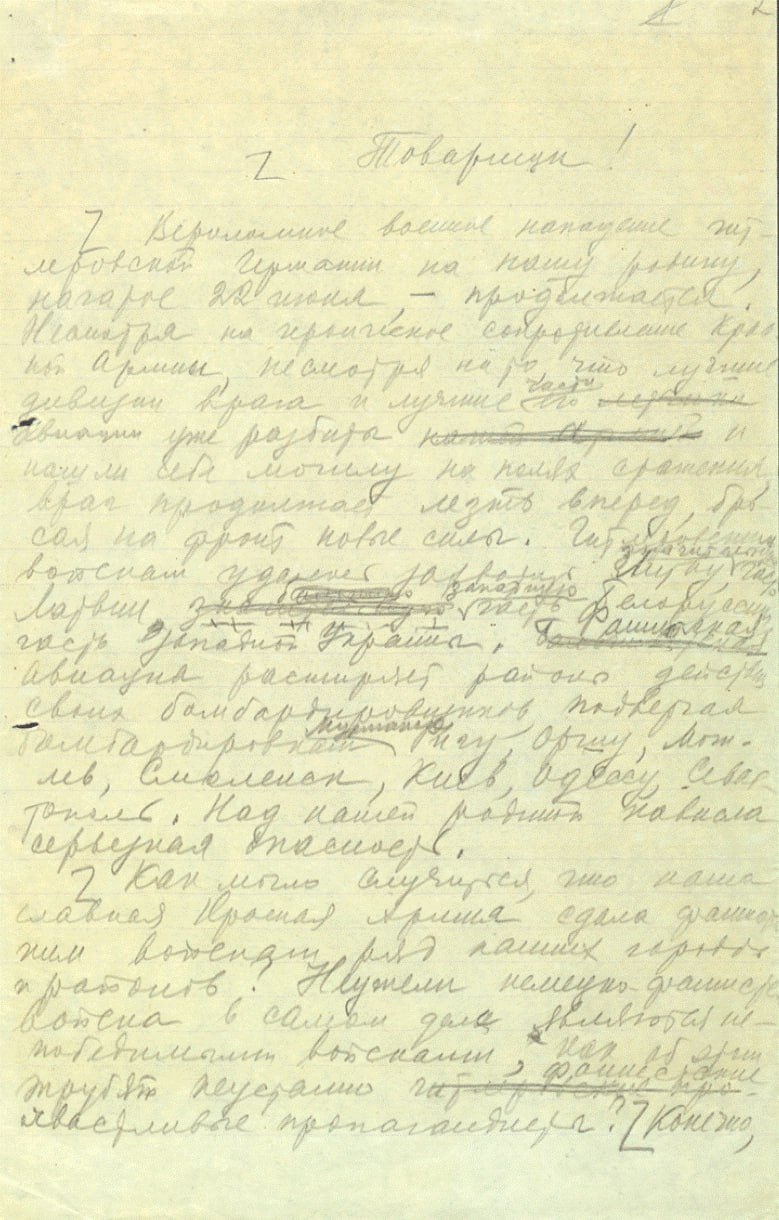 2
Товарищи!
Вероломное военное нападение гит-
леровской Германии на нашу родину,
начатое 22 июня, – продолжается.
Несмотря на героическое сопротивление Крас
ной Армии, несмотря на то, что лучшие
дивизии врага и лучшие части его
авиации уже разбиты и
нашли себе могилу на полях сражения,
враг продолжает лезть вперед, бро-
сая на фронт новые силы. Гитлеровским
войскам удалось захватить Литву, значительную часть
Латвии, западную часть Белоруссии,
часть Западной Украины. Фашистская
авиация расширяет районы действия
своих бомбардировщиков, подвергая
бомбардировкам Мурманск, Оршу, Моги-
лев, Смоленск, Киев, Одессу, Севас-
тополь. Над нашей родиной нависла
серьезная опасность.
Как могло случиться, что наша
славная Красная Армия сдала фашист
ким войскам ряд наших городов
и районов? Неужели немецко-фашистс
войска в самом деле являются не-
победимыми войсками, как об этом
трубят неустанно фашистские
хвастливые пропагандисты? Конечно,